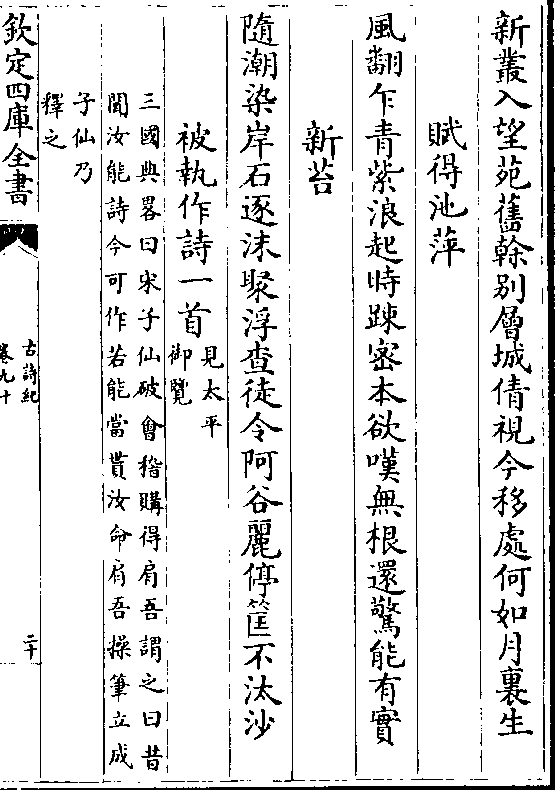 新叢入望苑舊榦别層城倩視今移處何如月裏生
賦得池萍
風翻乍青紫浪起時踈密本欲嘆無根還驚能有實
新苔
隨潮染岸石逐沫聚浮查徒令阿谷麗停筐不汰沙
被執作詩一首見太平御覽
三國典畧曰宋子仙破會稽購得肩吾謂之曰昔
聞汝能詩今可作若能當貰汝命肩吾操筆立成
子仙乃
釋之
欽定四庫全書
古詩紀
卷九十
二十